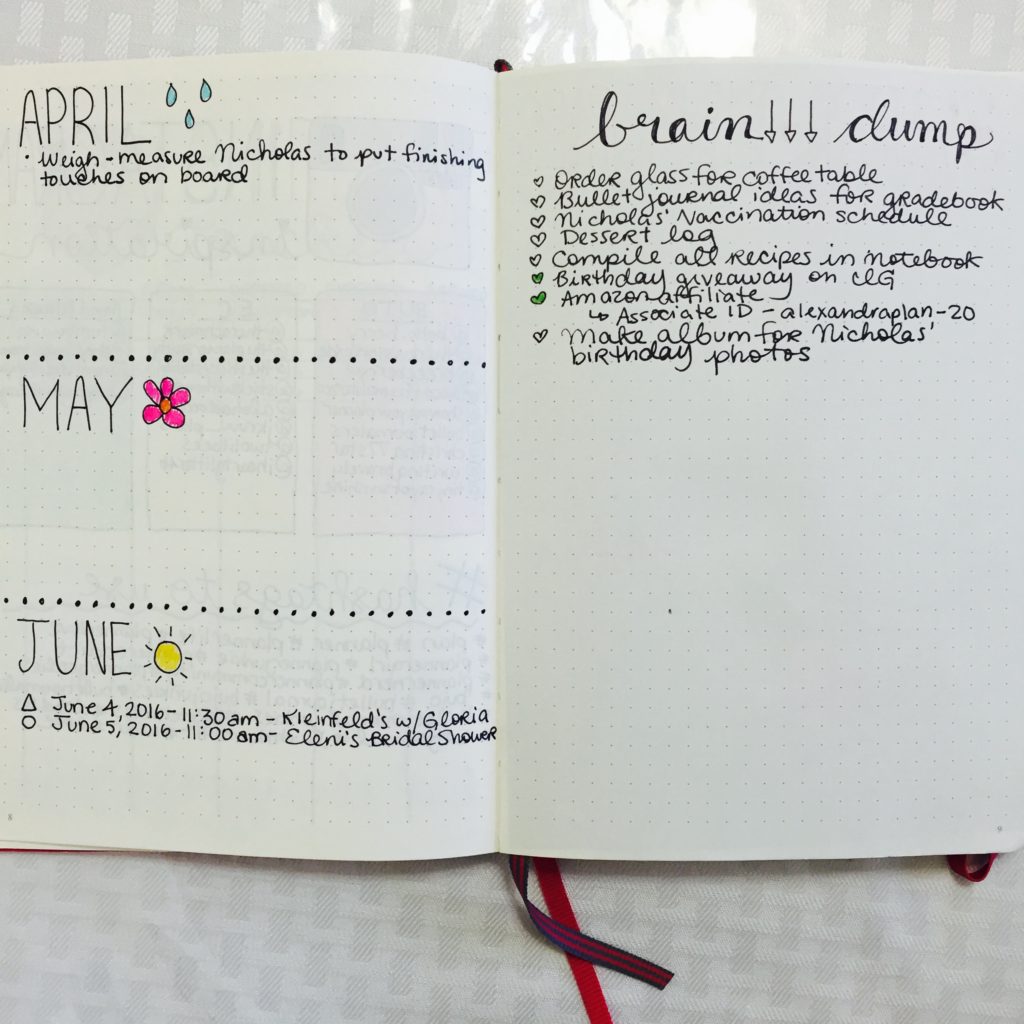 APRIL
• Weigh-measure Nicholas to put finishing
touches on board
MAY
JUNE
June 4, 2016 - 11:30 am - Kleinfeld's w/ Gloria
June 5, 2016 - 11:00 am - Eleni's Bridal Shower
8
brain dump
Order glass for coffee table
Bullet journal ideas for gradebook
Nicholas' Vaccination schedule
Dessert log
Compile all recipes in notebook
Birthday giveaway on
Amazon affiliate
↳ Associate ID - alexandraplan-20
Make album for Nicholas'
birthday photos
9